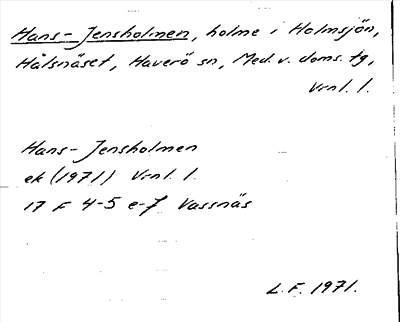 Hans-Jensholmen, holme i Holmsjön,
Hålsnäset, Haverö sn, Med. v. doms. tg,
Vrnl. l.
Hans-Jensholmen
ek (1971) Vrnl. l.
17 F 4-5 e-f Vassnäs
L.F. 1971.